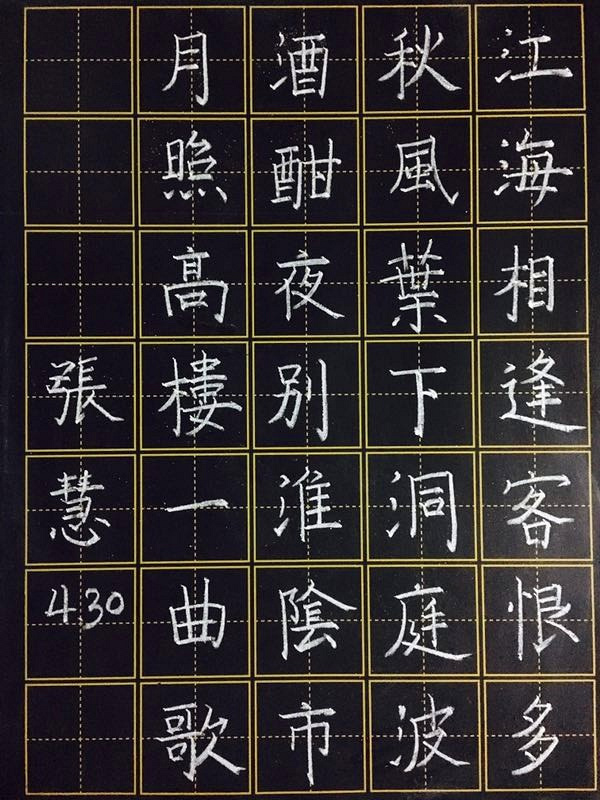 江海相逢客恨多
秋風葉下洞庭波
酒酣夜别淮陰市
月照高樓一曲歌
張慧
4.30